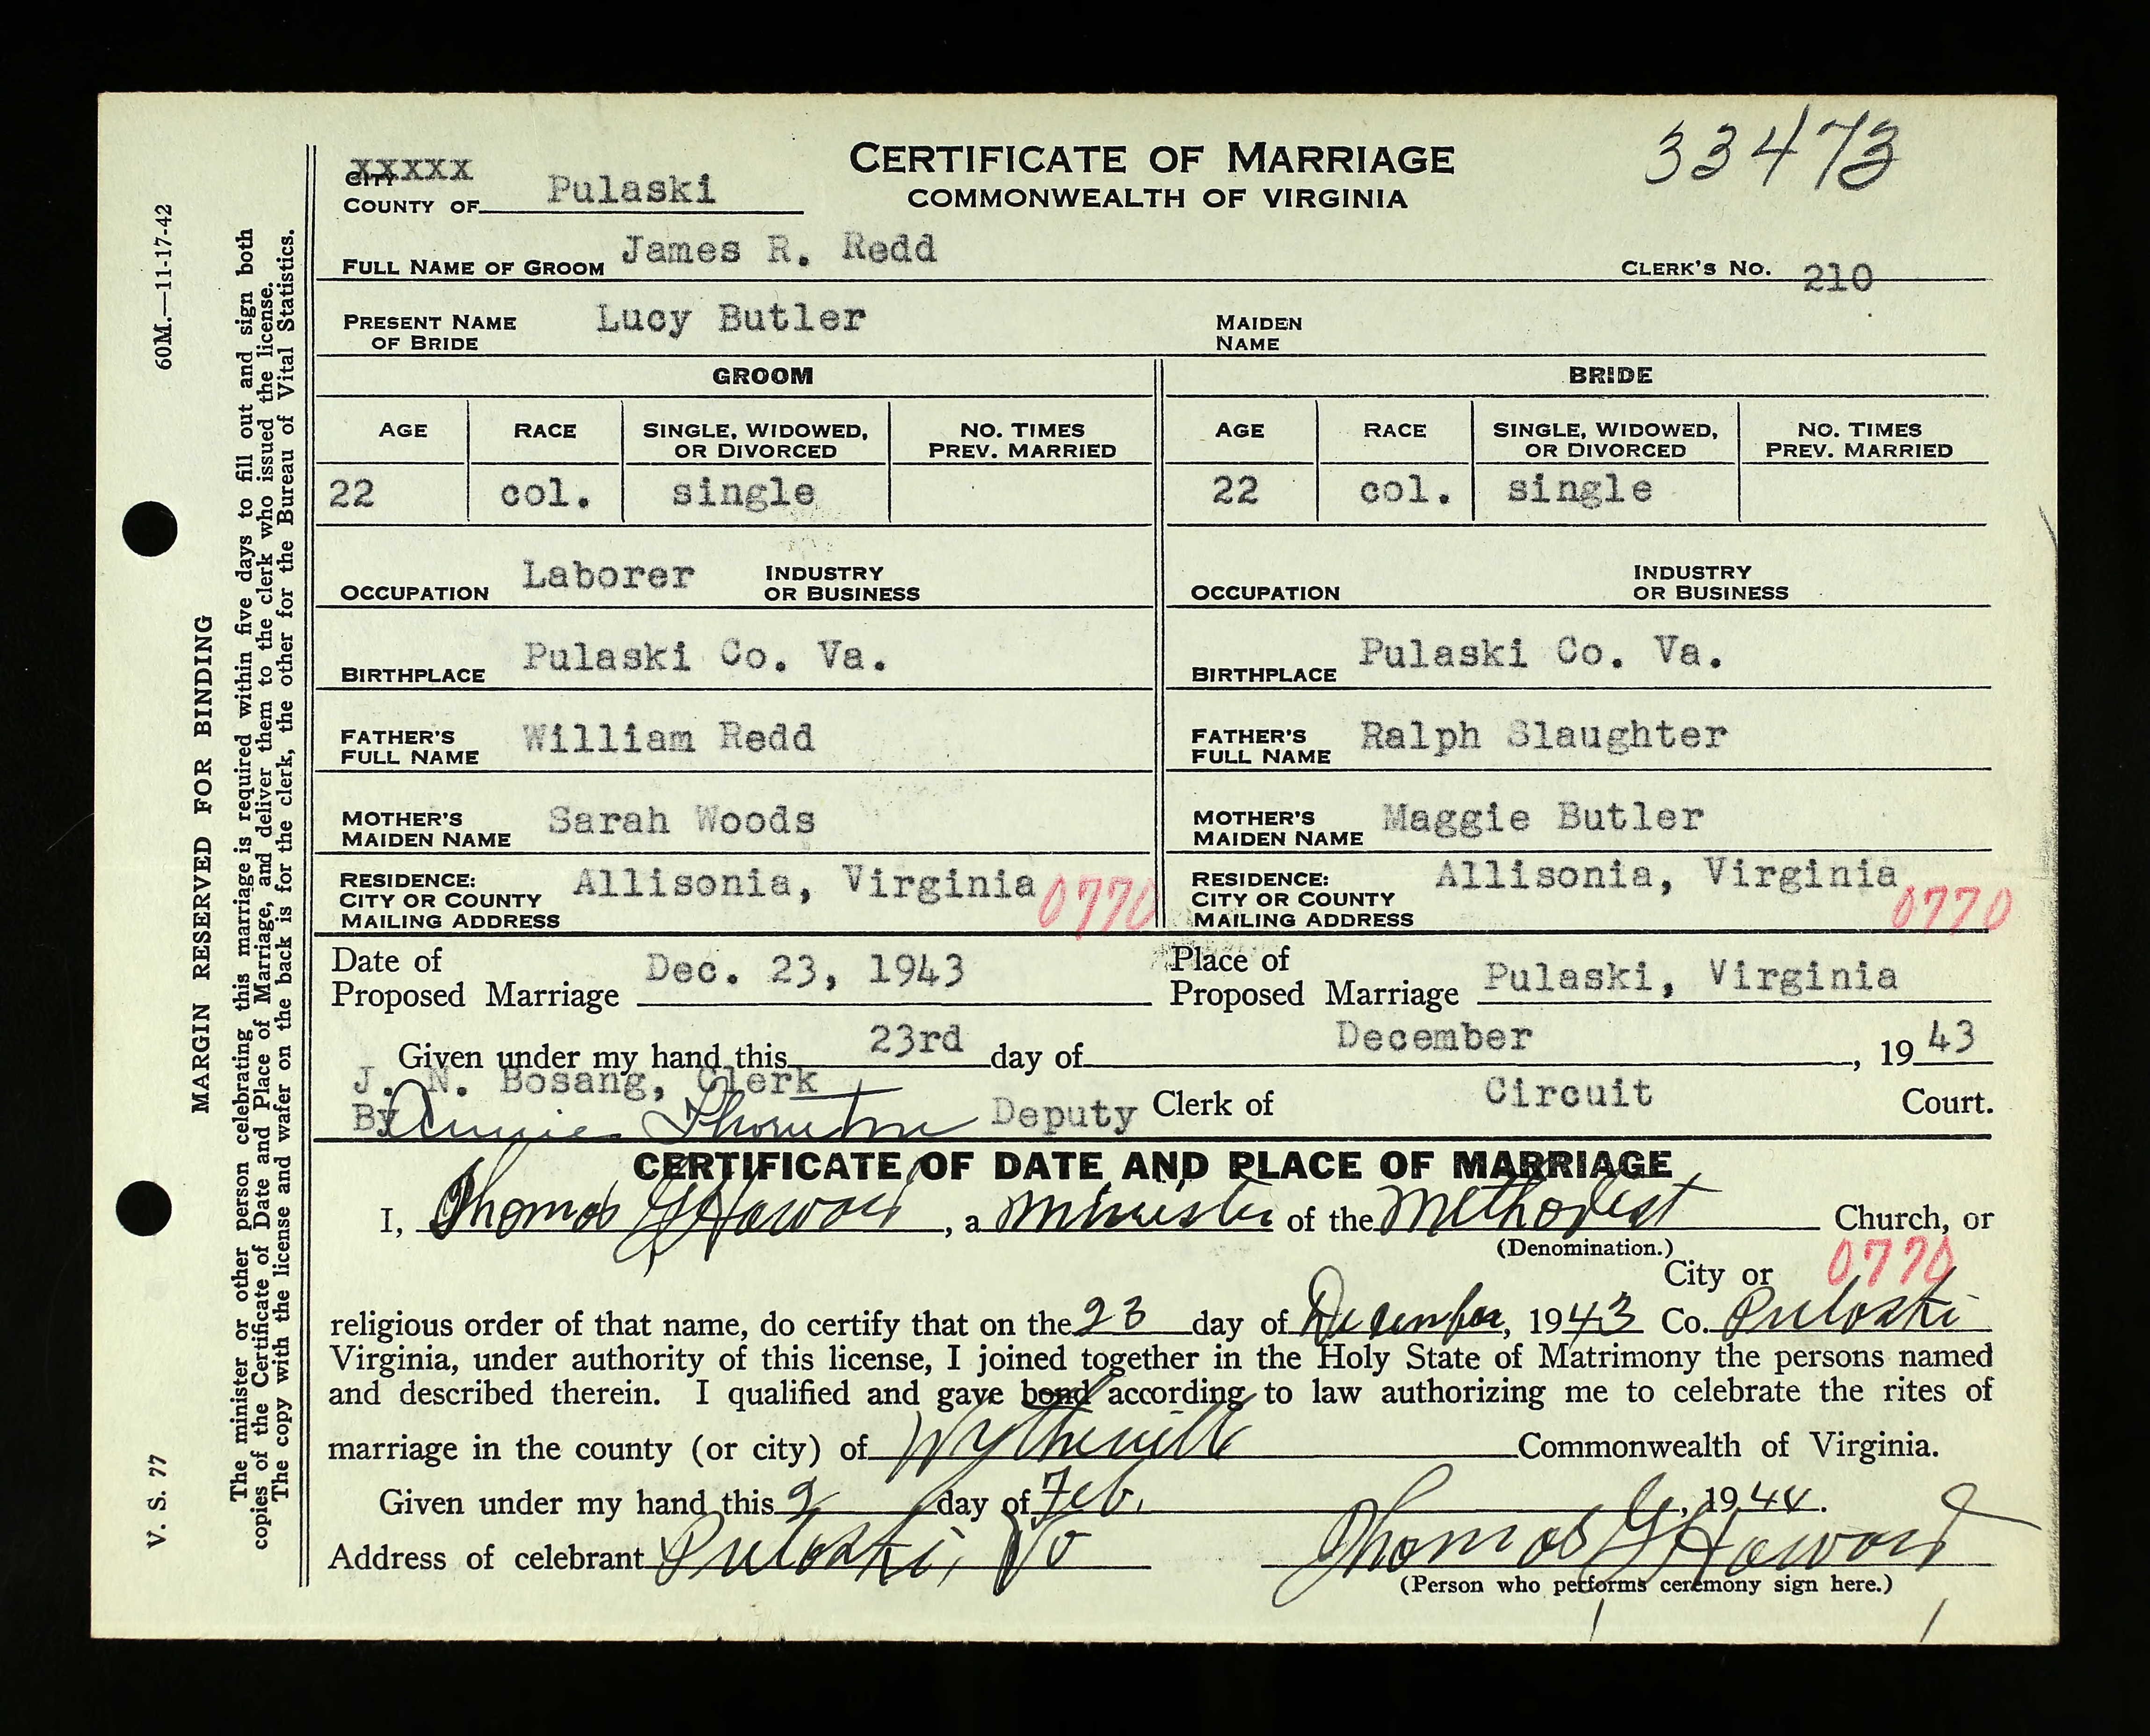 33473
XXXXX
CITY
COUNTY OF Pulaski
CERTIFICATE OF MARRIAGE
COMMONWEALTH OF VIRGINIA
FULL NAME OF GROOM James R. Redd CLERK'S NO. 210
PRESENT NAME OF BRIDE Lucy Butler MAIDEN NAME
GROOM BRIDE
AGE RACE SINGLE, WIDOWED, OR DIVORCED NO. TIMES PREV. MARRIED AGE RACE SINGLE, WIDOWED, OR DIVORCED NO. TIMES PREV. MARRIED
22 col. single 22 col. single
OCCUPATION Laborer INDUSTRY OR BUSINESS OCCUPATION INDUSTRY OR BUSINESS
BIRTHPLACE Pulaski Co. Va. BIRTHPLACE Pulaski Co. Va.
FATHER'S FULL NAME William Redd FATHER'S FULL NAME Ralph Slaughter
MOTHER'S MAIDEN NAME Sarah Woods MOTHER'S MAIDEN NAME Maggie Butler
RESIDENCE: CITY OR COUNTY MAILING ADDRESS Allisonia, Virginia 0770 RESIDENCE: CITY OR COUNTY MAILING ADDRESS Allisonia, Virginia 0770
Date of Proposed Marriage Dec. 23, 1943 Place of Proposed Marriage Pulaski, Virginia
Given under my hand this 23rd day of December, 1943
J. N. Bosang, Clerk
By Annie Thornton Deputy Clerk of Circuit Court.
CERTIFICATE OF DATE AND PLACE OF MARRIAGE
I, Thomas G Howard, a minister of the Methodist Church, or
(Denomination.)
City or 0770
religious order of that name, do certify that on the 23 day of December, 1943 Co. Pulaski
Virginia, under authority of this license, I joined together in the Holy State of Matrimony the persons named
and described therein. I qualified and gave bond according to law authorizing me to celebrate the rites of
marriage in the county (or city) of Wytheville Commonwealth of Virginia.
Given under my hand this 2 day of Feb., 1944.
Address of celebrant Pulaski, Va Thomas G Howard
(Person who performs ceremony sign here.)
V. S. 77 60M.—11-17-42
MARGIN RESERVED FOR BINDING
The minister or other person celebrating this marriage is required within five days to fill out and sign both
copies of the Certificate of Date and Place of Marriage, and deliver them to the clerk who issued the license.
The copy with the license and wafer on the back is for the clerk, the other for the Bureau of Vital Statistics.